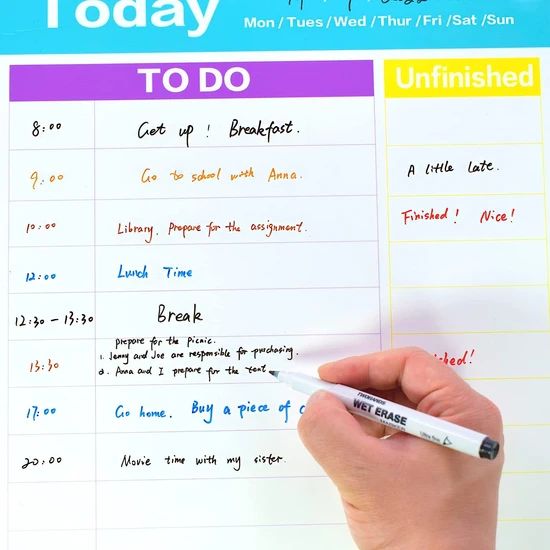 Today
Mon / Tues / Wed / Thur / Fri / Sat / Sun
TO DO
Unfinished
8:00 Get up! Breakfast.
9:00 Go to school with Anna. A little late.
10:00 Library. Prepare for the assignment. Finished! Nice!
12:00 Lunch Time
12:30 - 13:30 Break
Prepare for the Picnic.
13:30 1. Jenny and Joe are responsible for purchasing.
2. Anna and I prepare for the tent
17:00 Go home. Buy a piece of
20:00 Movie time with my sister.
WET ERASE